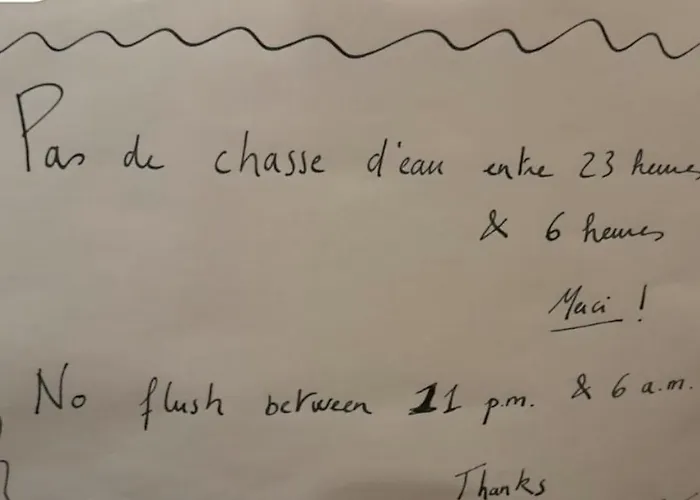 Pas de chasse d'eau entre 23 heures
& 6 heures
Merci !
No flush between 11 p.m. & 6 a.m.
Thanks